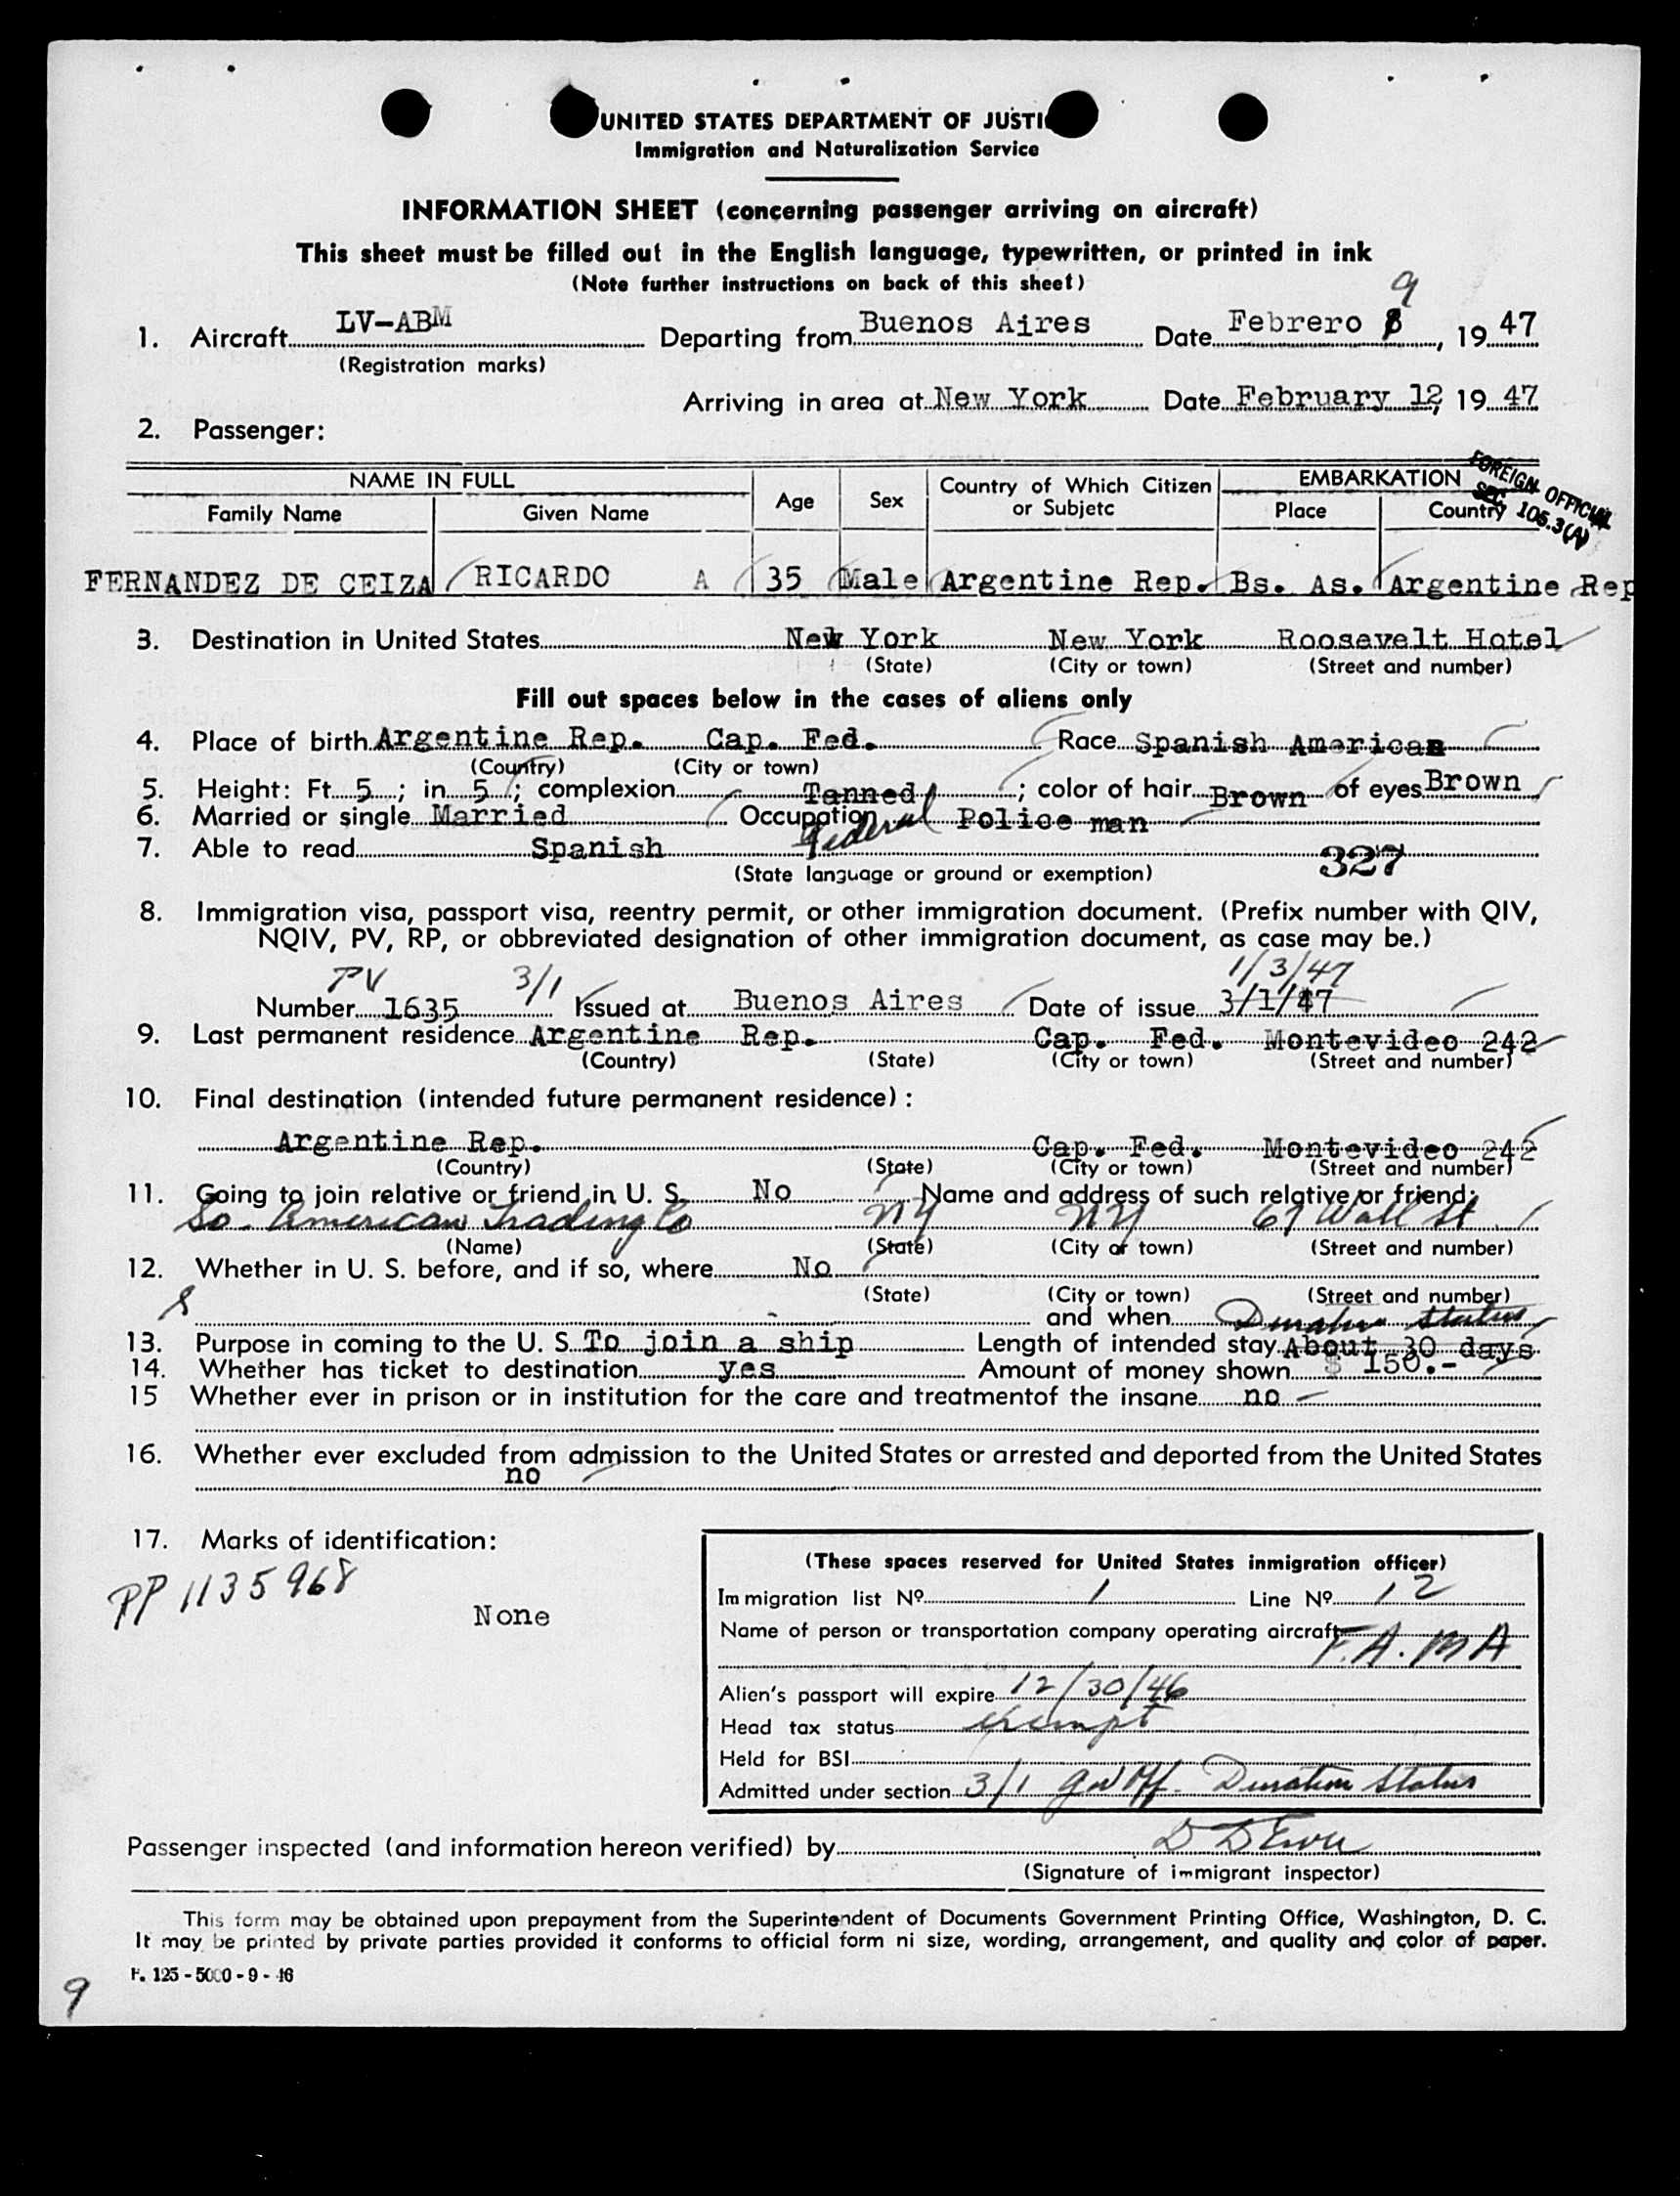 UNITED STATES DEPARTMENT OF JUSTI
Immigration and Naturalization Service
INFORMATION SHEET (concerning passenger arriving on aircraft)
This sheet must be filled out in the English language, typewritten, or printed in ink
(Note further instructions on back of this sheet)
9
1. Aircraft LV-ABM Departing from Buenos Aires Date Febrero 8, 19 47
(Registration marks)
Arriving in area at New York Date February 12, 19 47
2. Passenger:
FOREIGN OFFICIAL
SEC 105.3(A)
NAME IN FULL Age Sex Country of Which Citizen or Subjetc EMBARKATION
Family Name Given Name Place Country
FERNANDEZ DE CEIZA RICARDO A 35 Male Argentine Rep. Bs. As. Argentine Rep
3. Destination in United States New York New York Roosevelt Hotel
(State) (City or town) (Street and number)
Fill out spaces below in the cases of aliens only
4. Place of birth Argentine Rep. Cap. Fed. Race Spanish American
(Country) (City or town)
5. Height: Ft. 5; in. 5; complexion Tanned; color of hair Brown of eyes Brown
6. Married or single Married Occupation Federal Police man
7. Able to read Spanish
(State language or ground or exemption) 327
8. Immigration visa, passport visa, reentry permit, or other immigration document. (Prefix number with QIV,
NQIV, PV, RP, or obbreviated designation of other immigration document, as case may be.)
PV 3/1 1/3/47
Number 1635 Issued at Buenos Aires Date of issue 3/1/47
9. Last permanent residence Argentine Rep. Cap. Fed. Montevideo 242
(Country) (State) (City or town) (Street and number)
10. Final destination (intended future permanent residence) :
Argentine Rep. Cap. Fed. Montevideo 242
(Country) (State) (City or town) (Street and number)
11. Going to join relative or friend in U. S. No Name and address of such relative or friend:
So. American Trading Co NY NY 67 Wall St.
(Name) (State) (City or town) (Street and number)
12. Whether in U. S. before, and if so, where No
(State) (City or town) (Street and number)
and when Duration Status
13. Purpose in coming to the U. S. To join a ship Length of intended stay About 30 days
14. Whether has ticket to destination yes Amount of money shown $ 150.-
15 Whether ever in prison or in institution for the care and treatmentof the insane no -
16. Whether ever excluded from admission to the United States or arrested and deported from the United States
no
17. Marks of identification:
PP 1135968
None
(These spaces reserved for United States inmigration officer)
Immigration list Nº 1 Line Nº 12
Name of person or transportation company operating aircraft F.A.M A
Alien's passport will expire 12/30/46
Head tax status exempt
Held for BSI
Admitted under section 3/1 Gov Off. Duration Status
Passenger inspected (and information hereon verified) by
(Signature of immigrant inspector)
This form may be obtained upon prepayment from the Superintendent of Documents Government Printing Office, Washington, D. C.
It may be printed by private parties provided it conforms to official form ni size, wording, arrangement, and quality and color of paper.
F. 125 - 5000 - 9 - 46
9